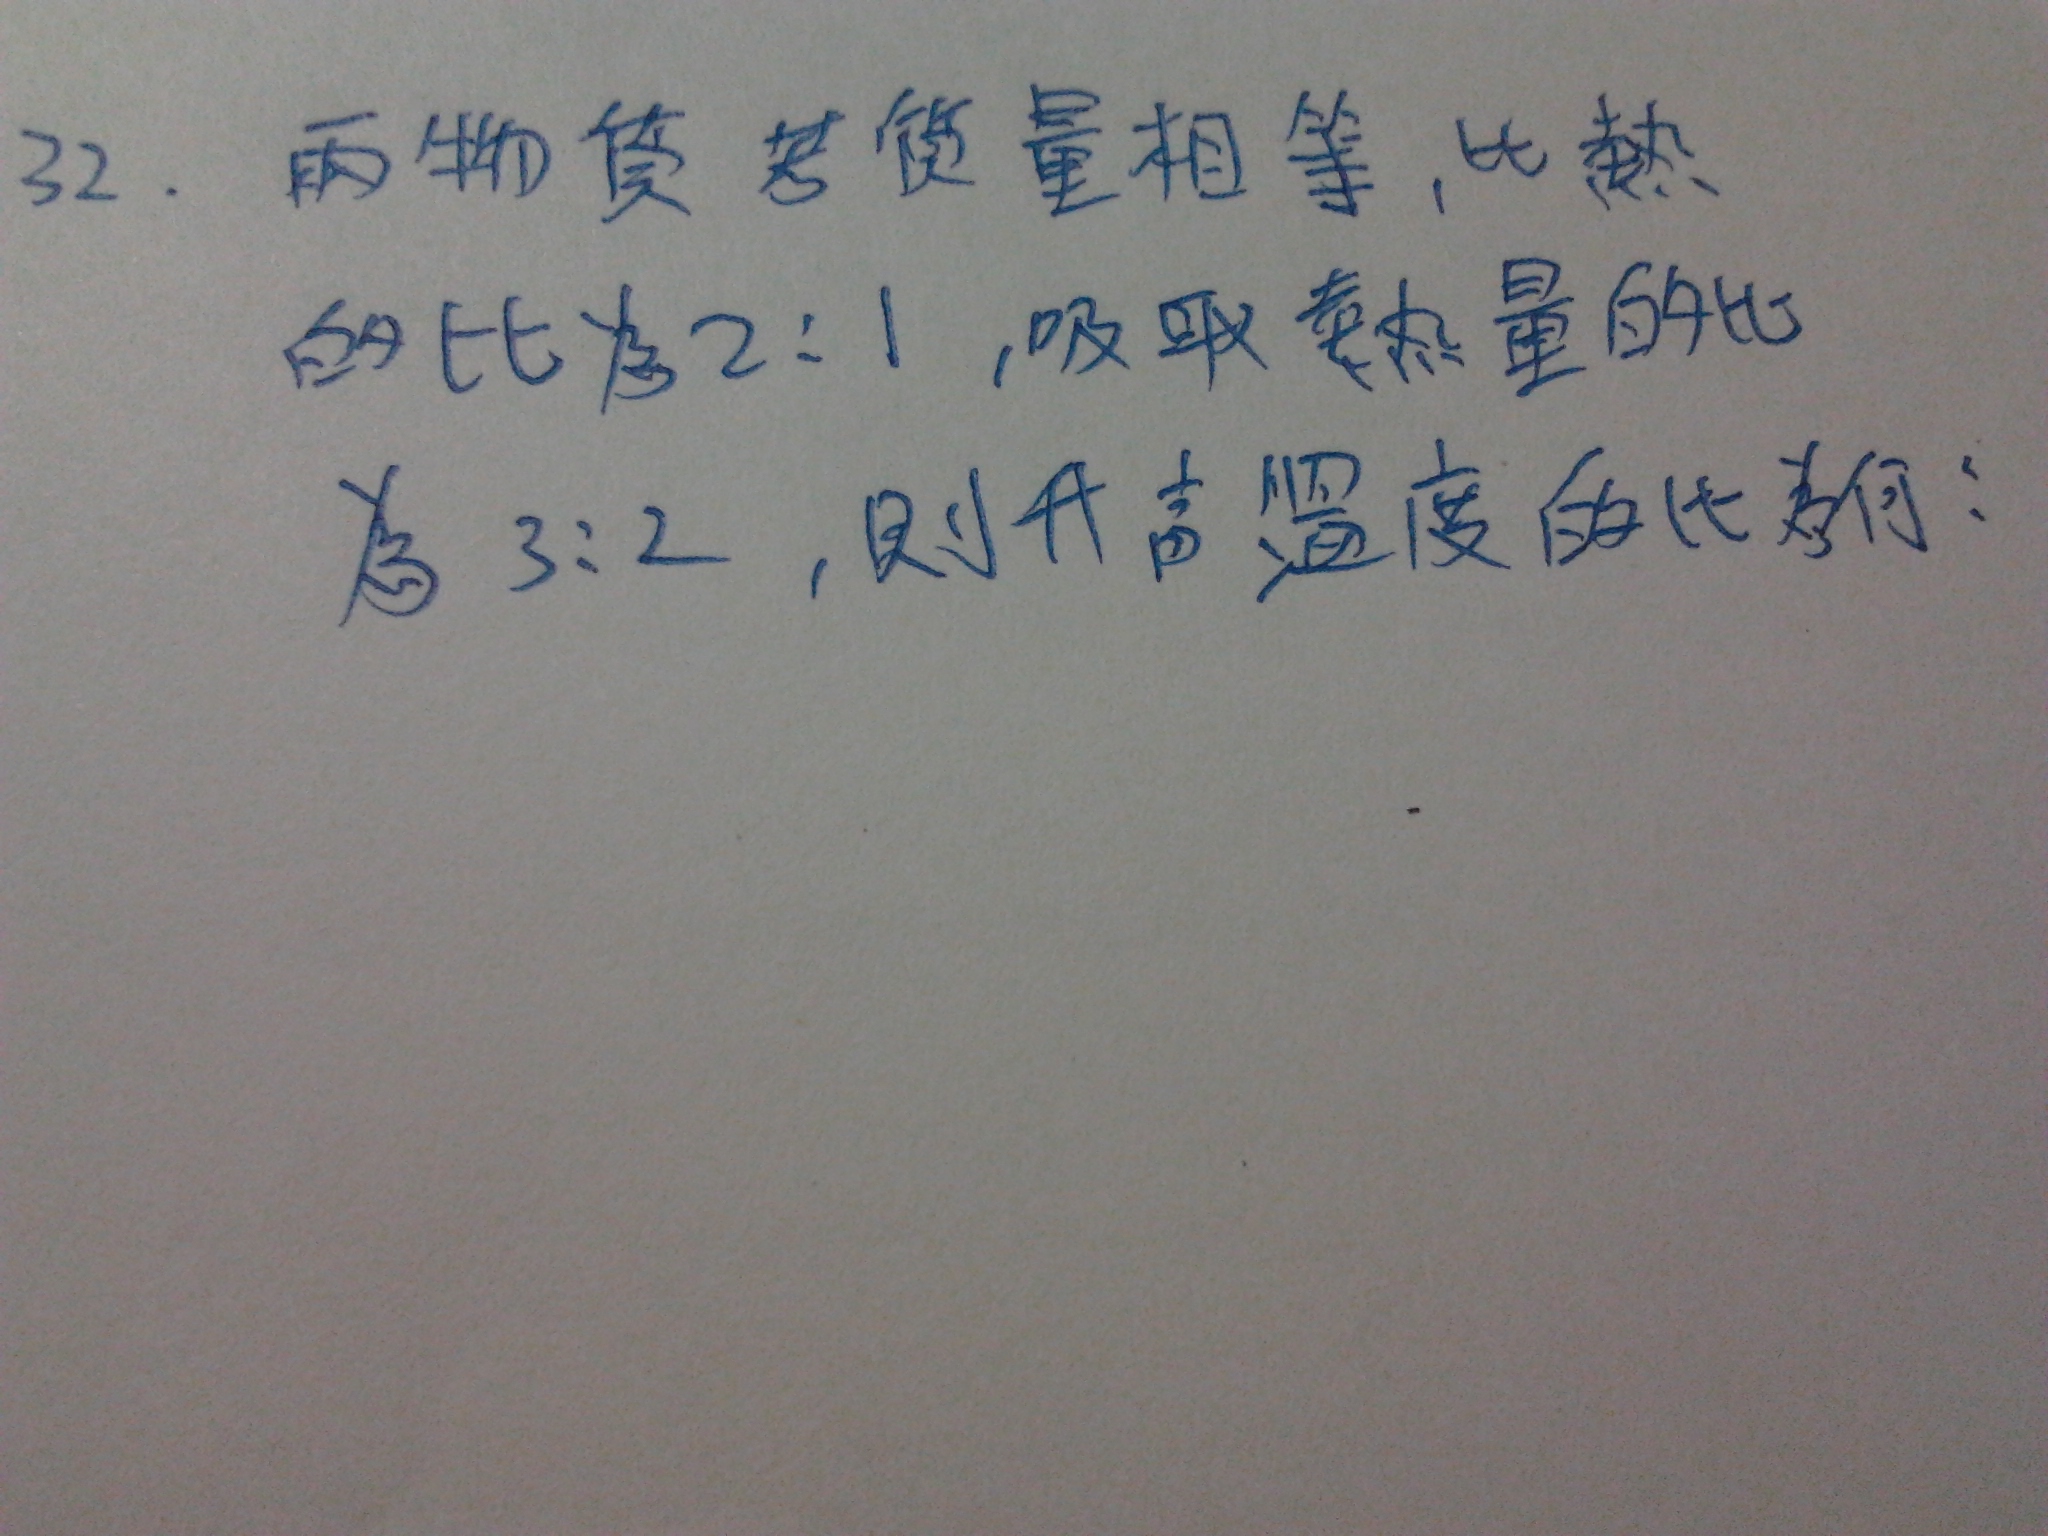 32. 兩物質若質量相等,比熱
的比為2:1,吸取熱量的比
為3:2,則升高溫度的比為何: